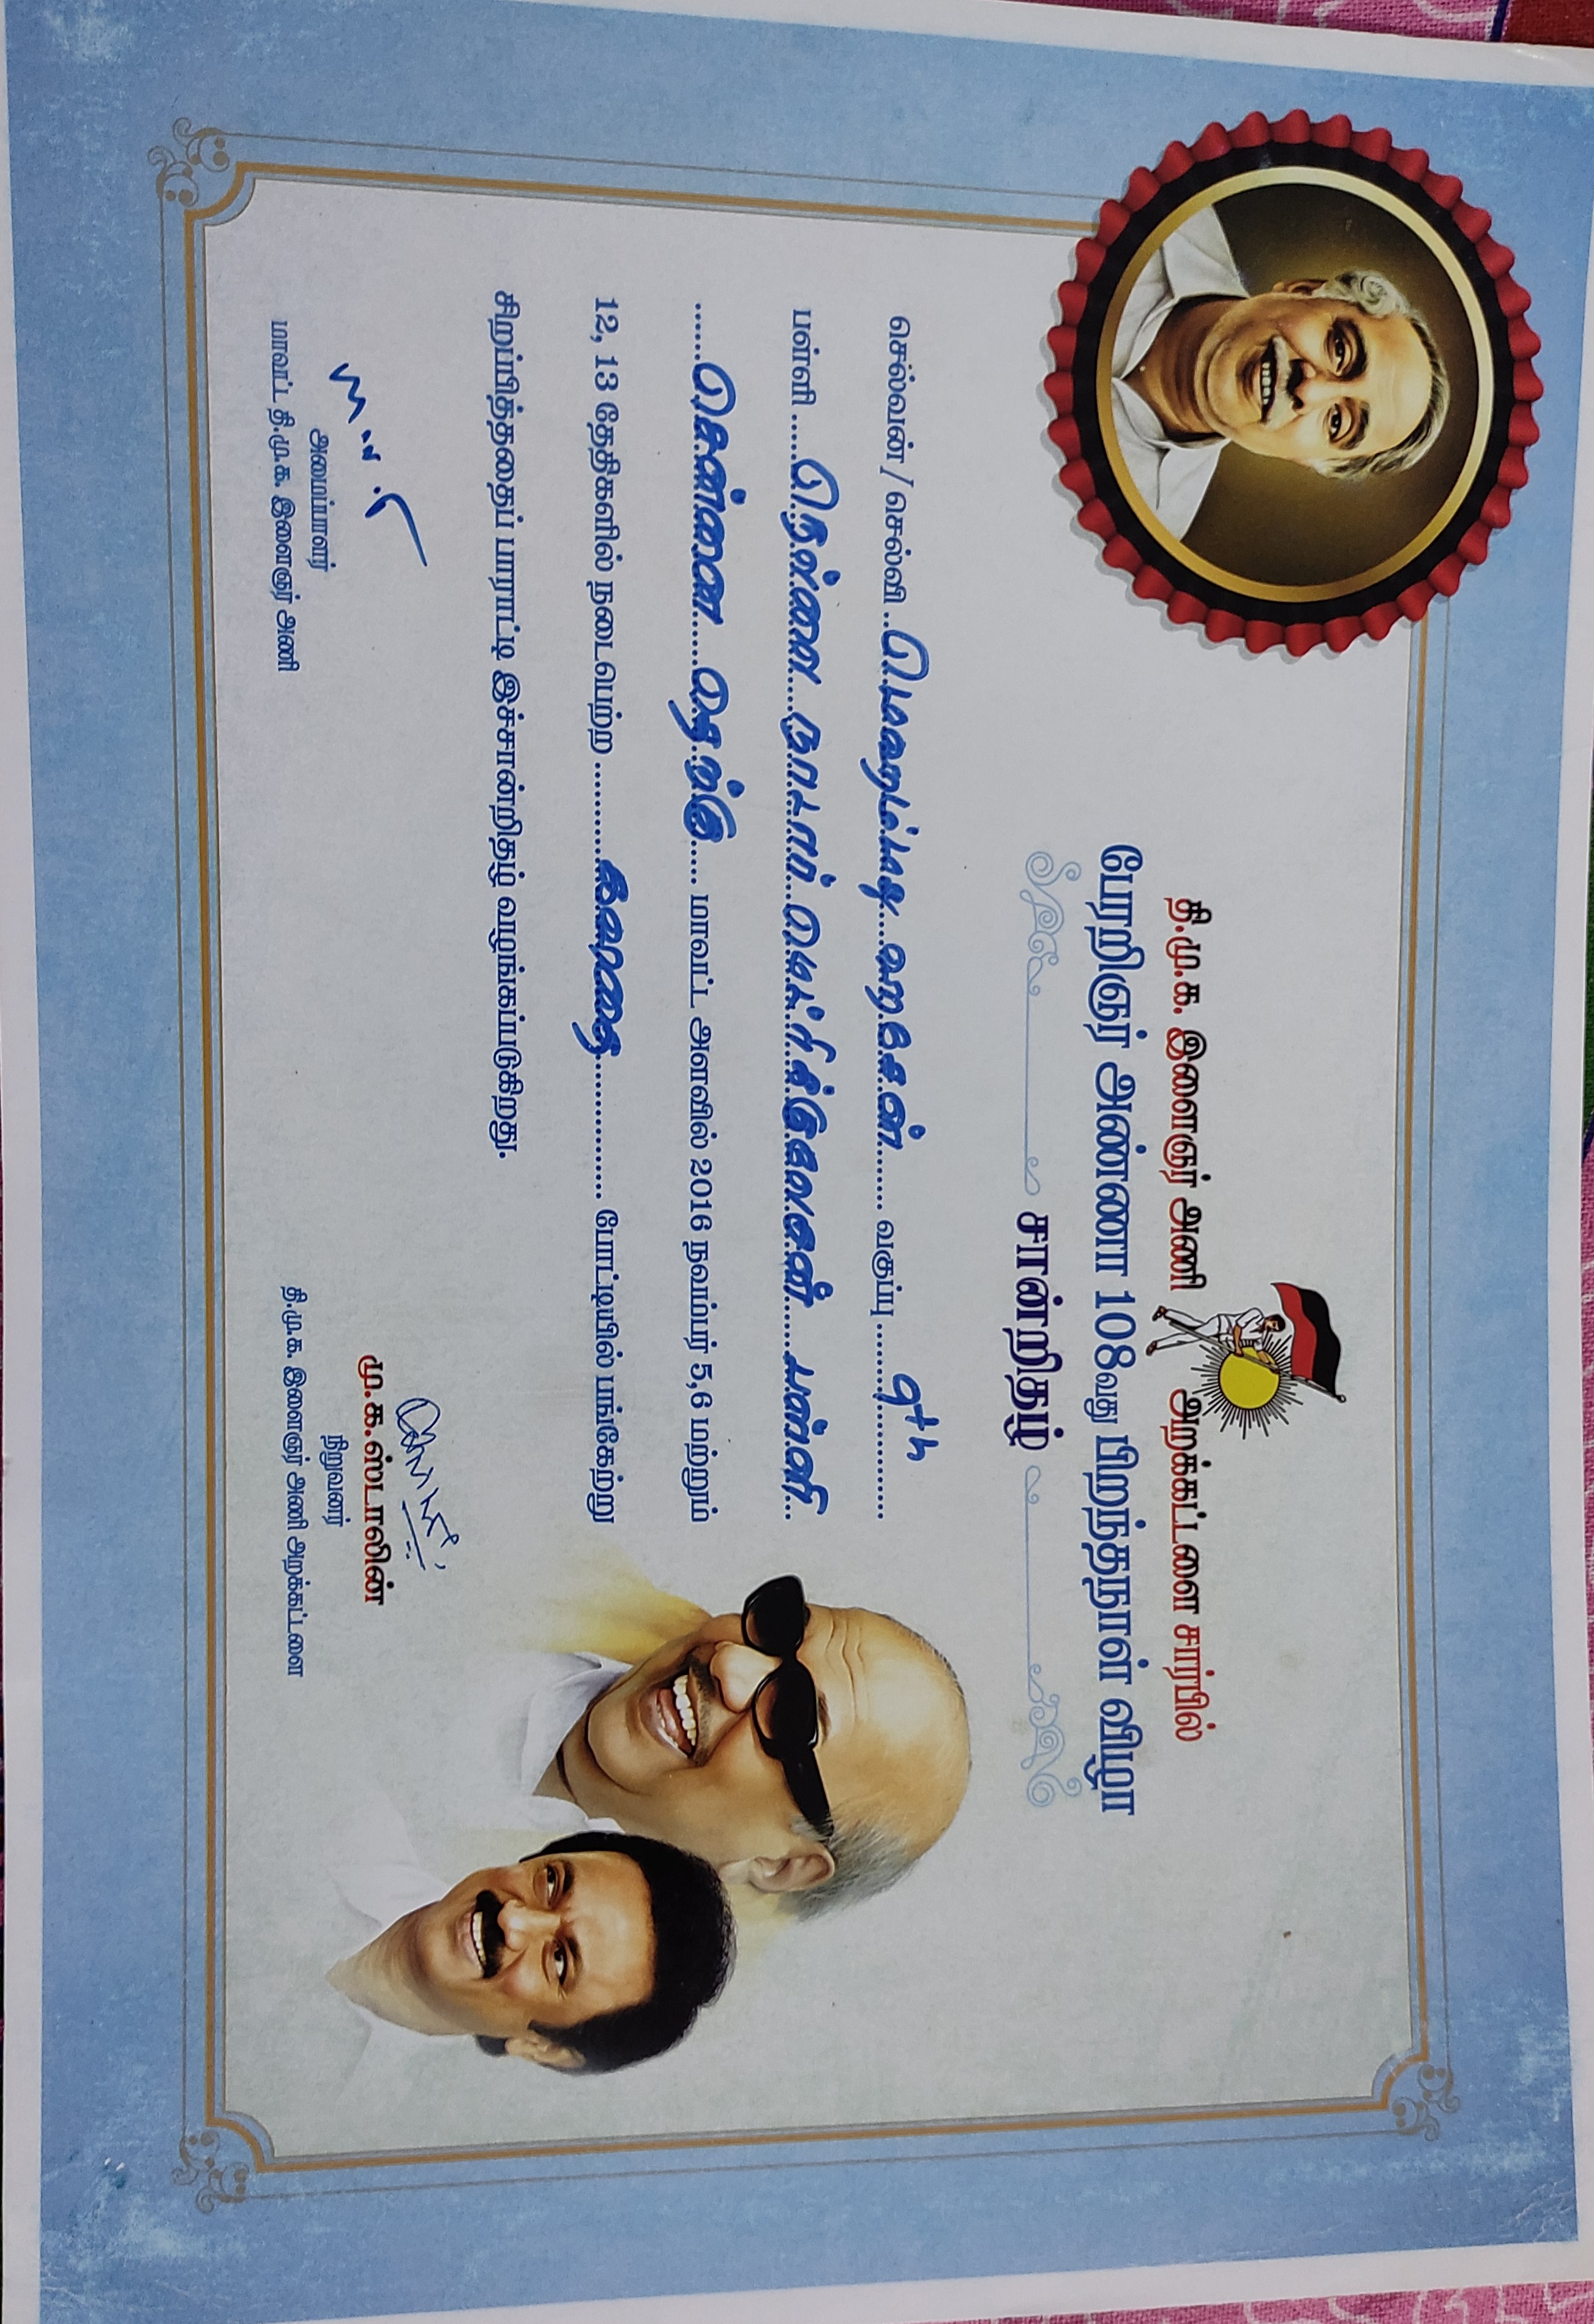 தி.மு.க. இளைஞர் அணி அறக்கட்டளை சார்பில்
பேரறிஞர் அண்ணா 108வது பிறந்தநாள் விழா
சான்றிதழ்
செல்வன் / செல்வி ..மொஹம்மது உசேன்.. வகுப்பு ..9th..
பள்ளி ..நெல்லை நாடார் மெட்ரிக்குலேசன் பள்ளி..
..சென்னை தெற்கு.. மாவட்ட அளவில் 2016 நவம்பர் 5,6 மற்றும்
12, 13 தேதிகளில் நடைபெற்ற ..கவிதை.. போட்டியில் பங்கேற்று
சிறப்பித்ததைப் பாராட்டி இச்சான்றிதழ் வழங்கப்படுகிறது.
அமைப்பாளர்
மாவட்ட தி.மு.க. இளைஞர் அணி
மு.க.ஸ்டாலின்
நிறுவனர்
தி.மு.க. இளைஞர் அணி அறக்கட்டளை